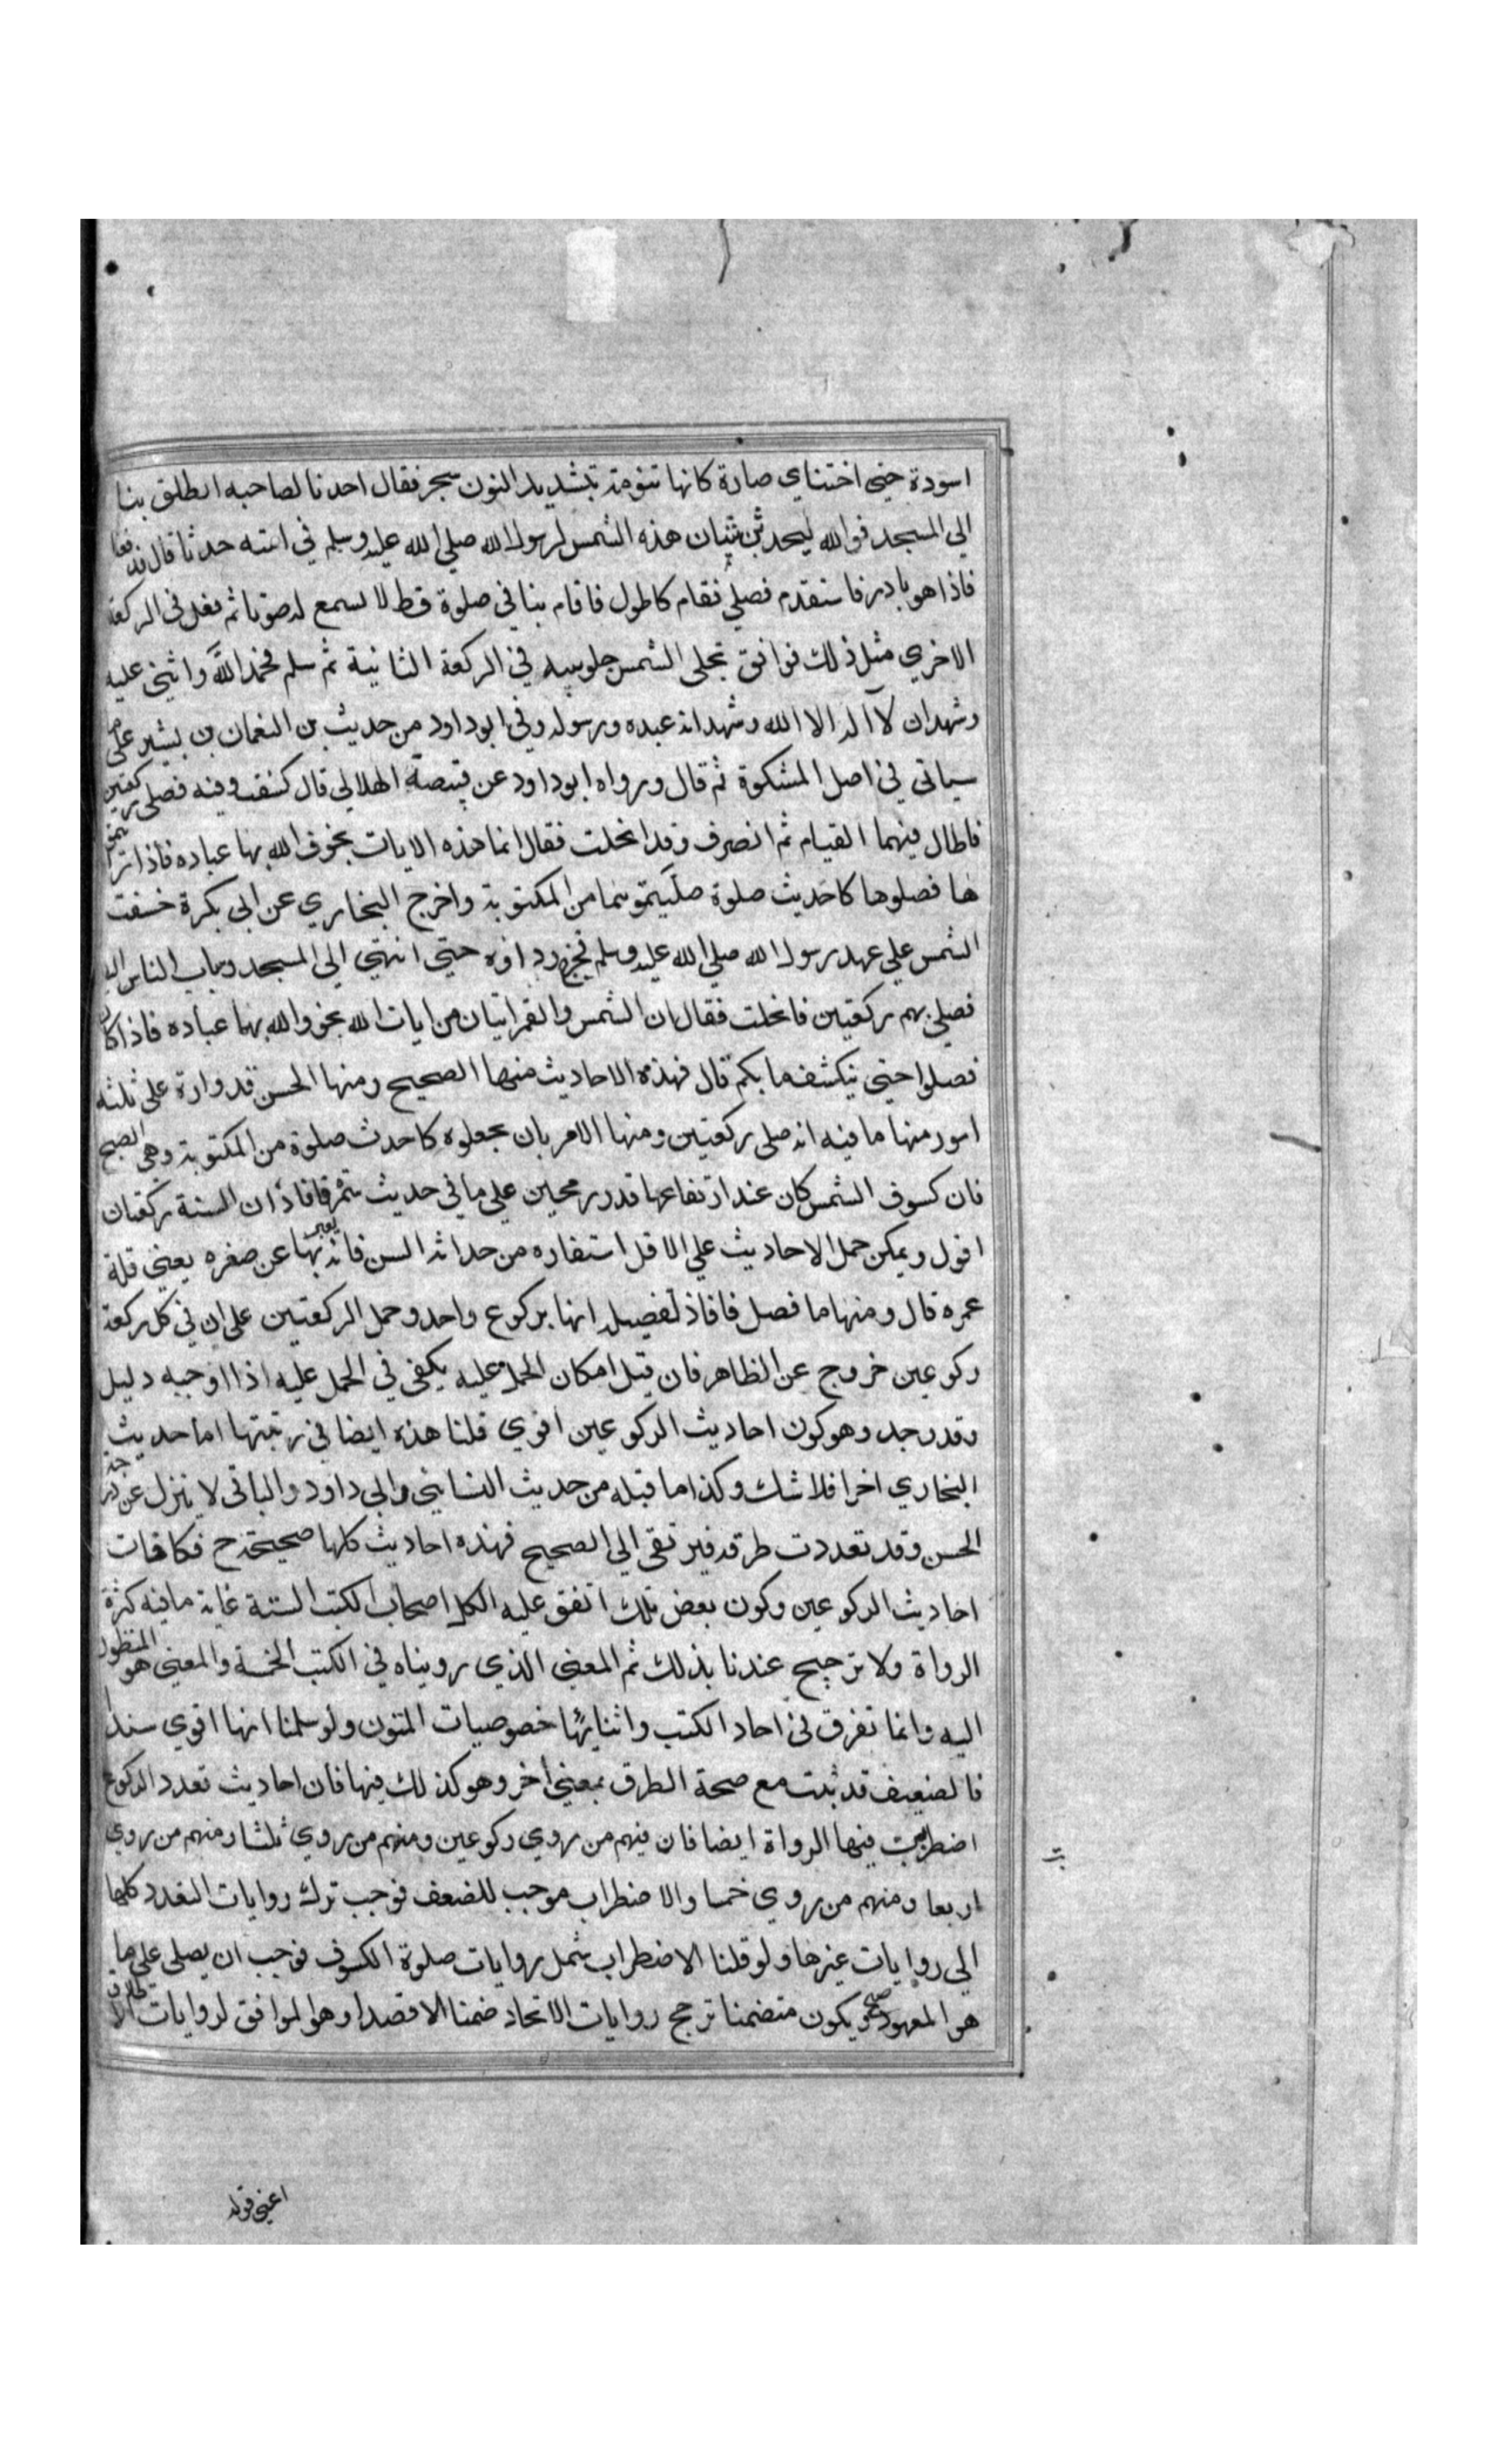 اسودة حتى اختناي صارة كانها تنومة بتشديد النون سجر فقال احدنا لصاحبه انطلق بنا
الي المسجد فوالله ليحدثن شان هذه الشمس لرسول الله صلي الله عليه وسلم في امته حدثا قال فدفعنا
فاذا هو بادرفاستقدم فصلي فقام كاطول فاقام بنا في صلوة قط لا نسمع له صوتا ثم فعل في الركعة
الاخري مثل ذلك فوافق تجلى الشمس جلوسه في الركعة الثانية ثم سلم فحمد الله واثني عليه
وشهد ان لا اله الا الله وشهد انه عبده ورسوله وفي ابو داود من حديث بن النعمان بن بشير علي ما
سياتي في اصل المشكوة ثم قال ورواه ابو داود عن قبيصة الهلالي قال كسفت وفيه فصلى ركعتين
فاطال فيهما القيام ثم انصرف وقد انجلت فقال انما هذه الايات يخوف الله بها عباده فاذا رايتمو
ها فصلوها كاحديث صلوة صليتموها من المكتوبة واخرج البخاري عن ابي بكرة خسفت
الشمس علي عهد رسول الله صلي الله عليه وسلم فخرج رداؤه حتي انتهي الي المسجد وباب الناس اليه
فصلي بهم ركعتين فانجلت فقال ان الشمس والقمر ايتان من ايات الله يخوف الله بهما عباده فاذا كان
فصلوا حتي ينكشف ما بكم قال فهذه الاحاديث منها الصحيح ومنها الحسن قد وارة علي ثلثه
امور منها ما فيه انه صلى ركعتين ومنها الامر بان يجعلوه كاحدث صلوة من المكتوبة وهي الصبح
فان كسوف الشمس كان عند ارتفاعها قدر رمحين علي ما في حديث سمرة فافاد ان السنة ركعتان
اقول ويمكن حمل الاحاديث علي الاقل استفاره من حداثه السن فانه يعبر بها عن صغره يعني قلة
عمره قال ومنها ما فصل فافاد تفصيله انها بركوع واحد وحمل الركعتين على ان في كل ركعة
ركوعين خروج عن الظاهر فان قيل امكان الحمل عليه يكفى في الحمل عليه اذا اوجبه دليل
وقد وجد وهو كون احاديث الركوعين اقوي قلنا هذه ايضا في رتبتها اما حديث
البخاري اخرا فلا شك وكذا ما قبله من حديث النسايي وابي داود والباقى لا ينزل عن درجة
الحسن وقد تعددت طرقه فيرتقى الي الصحيح فهذه احاديث كلها صحيحة ح فكافات
احاديث الركوعين وكون بعض تلك اتفق عليه الكل اصحاب الكتب الستة غاية ما فيه كثرة
الرواة ولا ترجيح عندنا بذلك ثم المعني الذي رويناه في الكتب الخمسة والمعني هو المنظور
اليه وانما تفرق في احاد الكتب واثنايها خصوصيات المتون ولو سلمنا انها اقوي سندا
فالضعيف قد ثبت مع صحة الطرق بمعني اخر وهو كذلك فيها فان احاديث تعدد الركوع
اضطربت فيها الرواة ايضا فان فيهم من روي ركوعين ومنهم من روي ثلثا ومنهم من روي
اربعا ومنهم من روي خمسا والاضطراب موجب للضعف فوجب ترك روايات التعدد كلها
الي روايات غيرها ولو قلنا الاضطراب شمل روايات صلوة الكسوف فوجب ان يصلى على ما
هو المعهود صح ويكون متضمنا ترجح روايات الاتحاد ضمنا لا قصدا وهو الموافق لروايات الاطلاق
اعني قوله